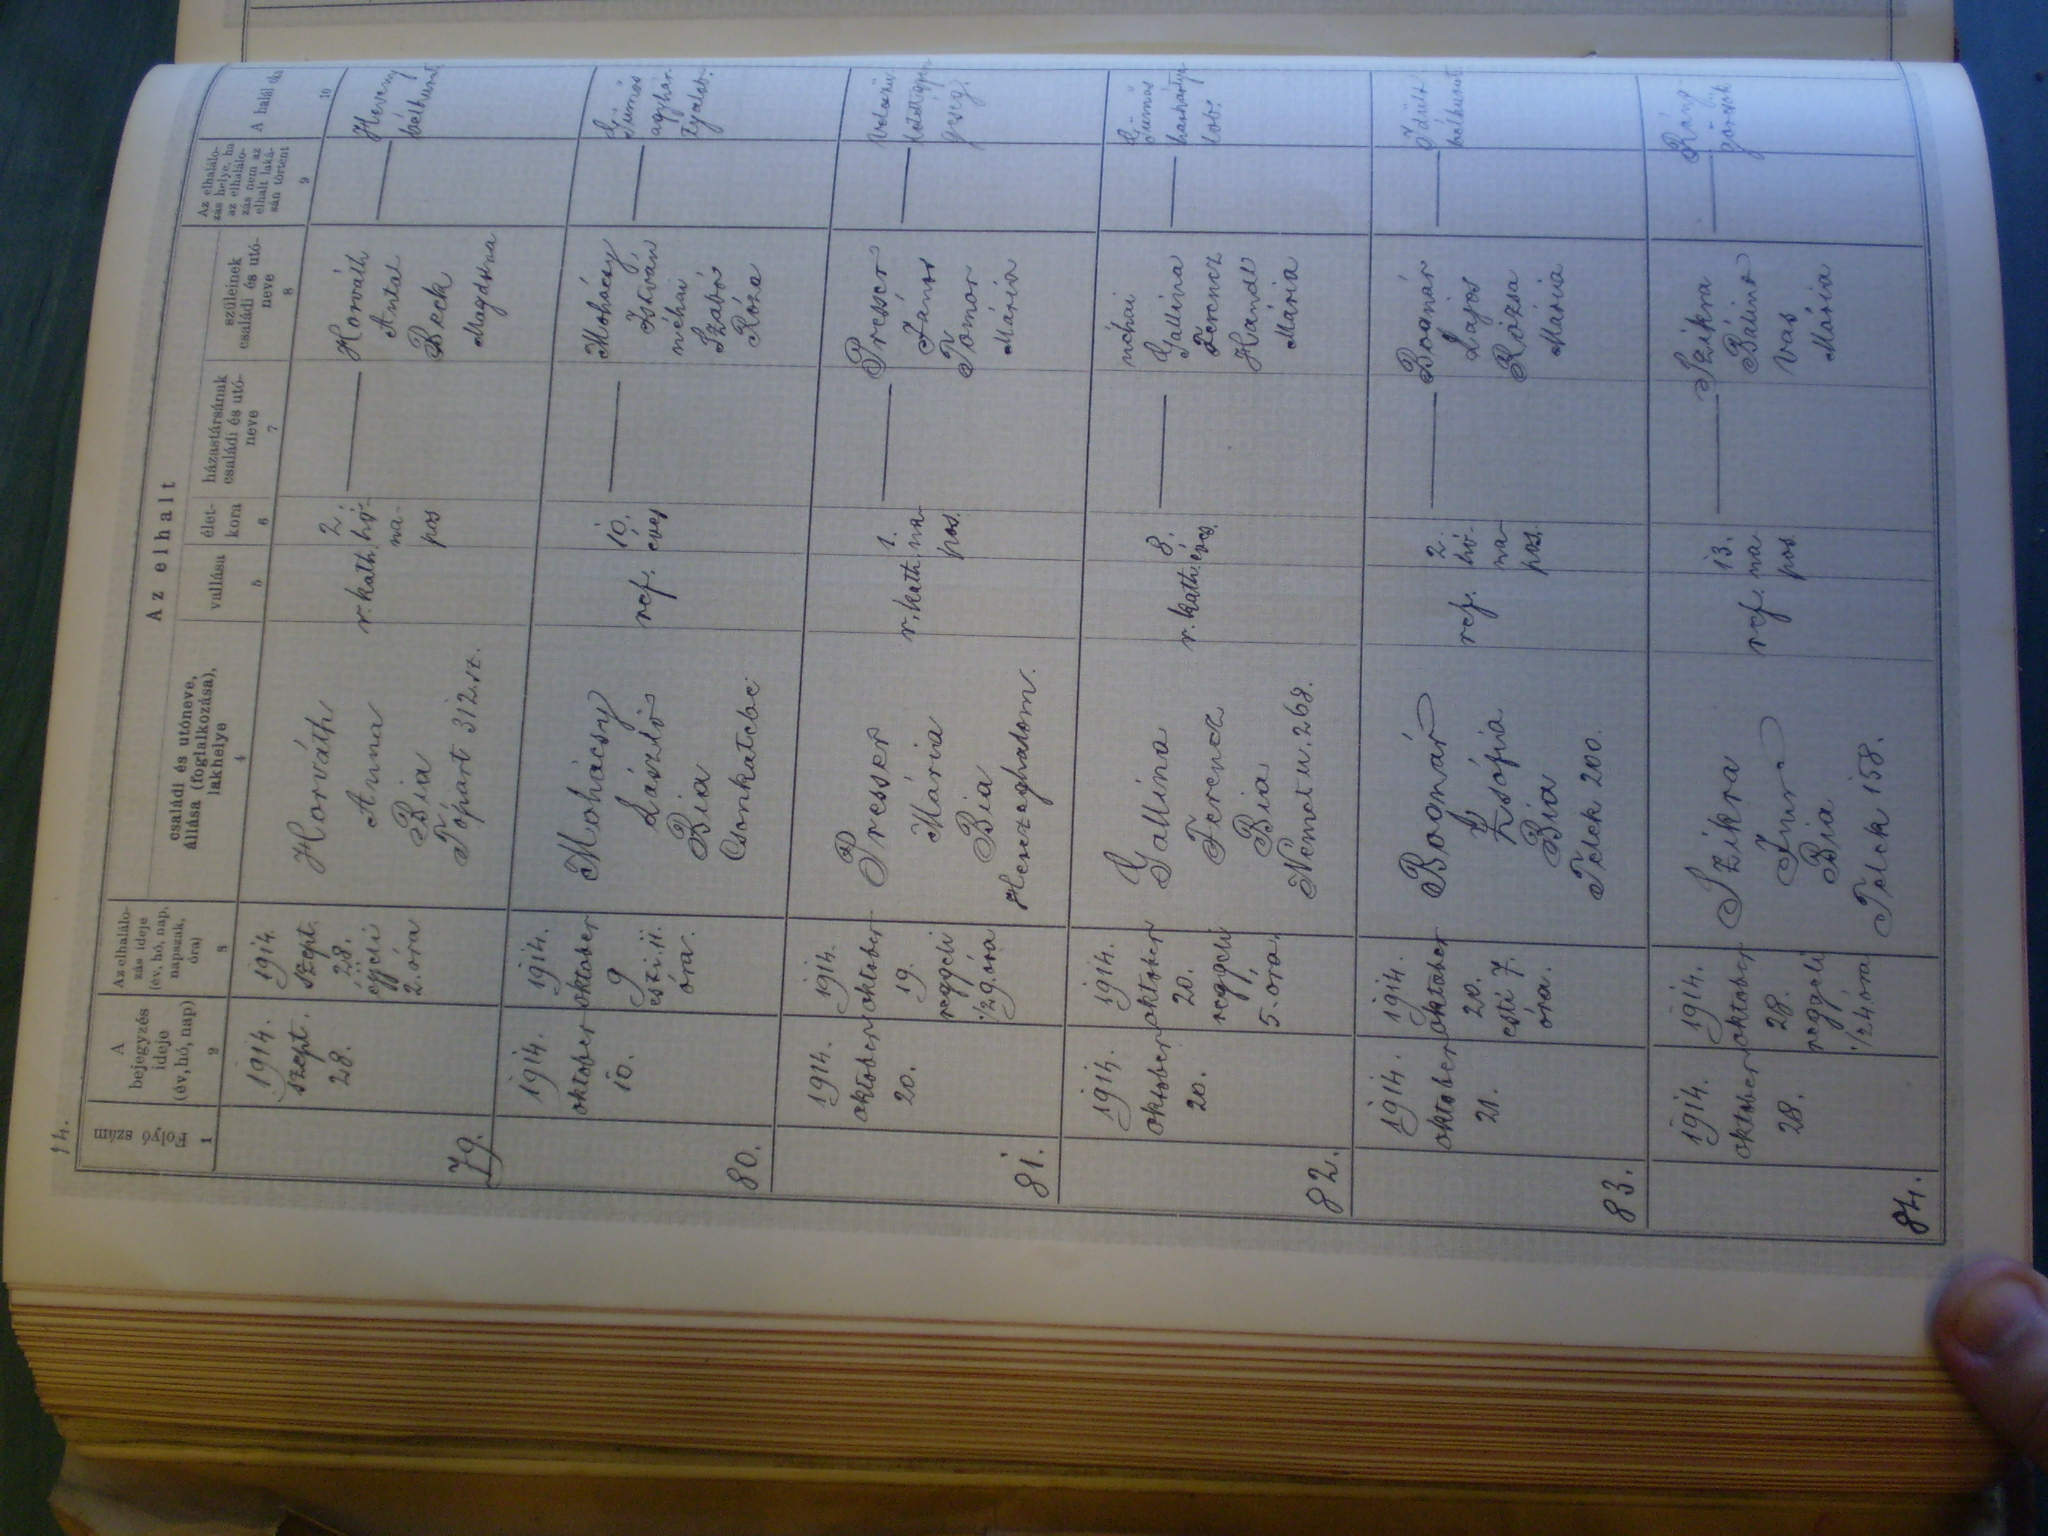 14.
Az elhalt
Folyó szám
A bejegyzés ideje (év, hó, nap)
Az elhalálozás ideje (év, hó, nap, napszak, óra)
családi és utóneve, állása (foglalkozása), lakhelye
vallása
életkora
házastársának családi és utóneve
szüleinek családi és utóneve
Az elhalálozás helye, ha az elhalálozás nem az elhalt lakásán történt
A halál oka
1
2
3
4
5
6
7
8
9
10
79.
1914.
szept.
28.
1914.
szept.
28.
éjjeli
2. óra
Horváth
Anna
Bia
Tópart 312. sz.
r. kath.
2.
hó-
na-
pos
Horváth
Antal
Beck
Magdolna
Heveny
bélhurut
80.
1914.
október
10.
1914.
október
9
esti 11.
óra.
Mohácsy
László
Bia
Csonkatebe
ref.
10.
éves
Mohácsy
István,
néhai
Szabó
Róza
Gümős
agyhár-
tyalob.
81.
1914.
október
20.
1914.
október
19.
reggeli
1/2 9. óra
Presser
Mária
Bia
Herczeghalom.
r. kath.
1.
na-
pos.
Presser
János
Tomor
Mária
Veleszü-
letett gyen-
geség.
82.
1914.
október
20.
1914.
október
20.
reggeli
5. óra.
Gallina
Ferencz
Bia
Német u. 268.
r. kath.
8.
éves.
néhai
Gallina
Ferencz
Handl
Mária
Gümős
hashártya-
lob.
83.
1914.
október
21.
1914.
október
20.
esti 7.
óra.
Bognár
Zsófia
Bia
Telek 200.
ref.
2.
hó-
na-
pos.
Bognár
Lajos
Rózsa
Mária
Idült
bélhurut
84.
1914.
október
28.
1914.
október
28.
reggeli
1/2 4. óra
Szikra
Imre
Bia
Telek 158.
ref.
13.
na-
pos
Szikra
Bálint
Vas
Mária
Ráng-
görcsök